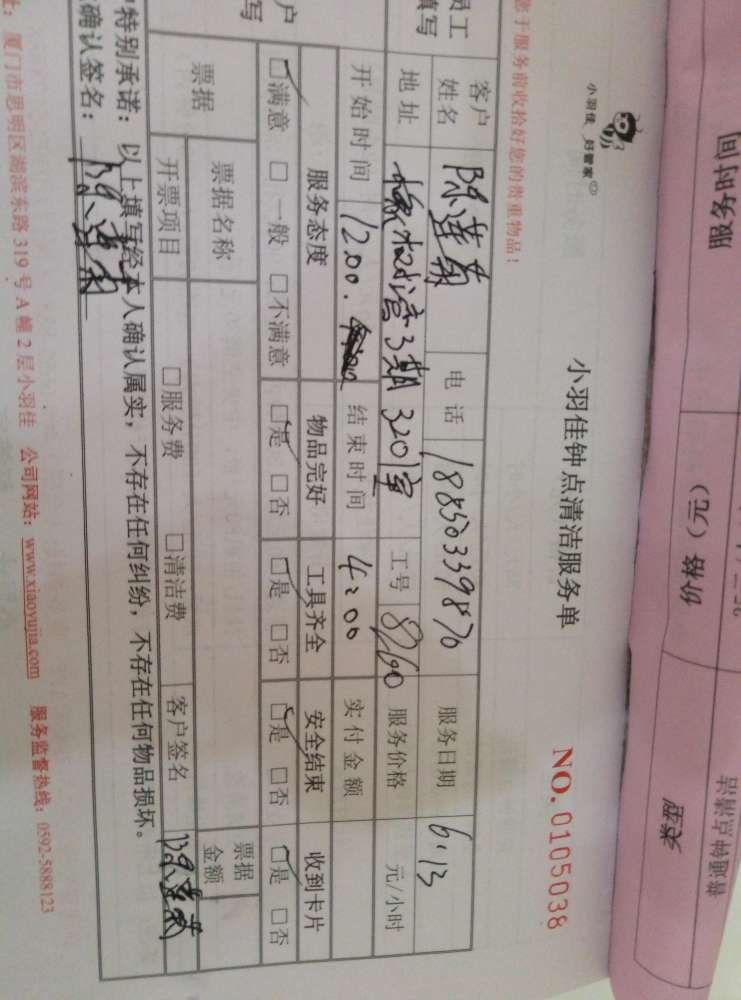 小羽佳 好管家
小羽佳钟点清洁服务单
NO. 0105038
您于服务前收拾好您的贵重物品！
员工
填写
客户
姓名
电 话
18850339870
服务日期
6.13
地 址
3期 3201室
工号
8260
服务价格
元/小时
开 始 时 间
12.00.
结 束 时 间
4:00
实 付 金 额
户
写
服务态度
物品完好
工具齐全
安全结束
收到卡片
☑满意 □一般 □不满意
☑是 □否
☑是 □否
☑是 □否
☑是 □否
票据
票据名称
票据
金额
开票项目
□服务费
□清洁费
客户签名
特别承诺：以上填写经本人确认属实，不存在任何纠纷，不存在任何物品损坏。
确认签名：
址：厦门市思明区湖滨东路 319 号 A 幢 2 层小羽佳 公司网站：www.xiaoyujia.com 服务监督热线：0592-5888123
服务时间
价格（元）